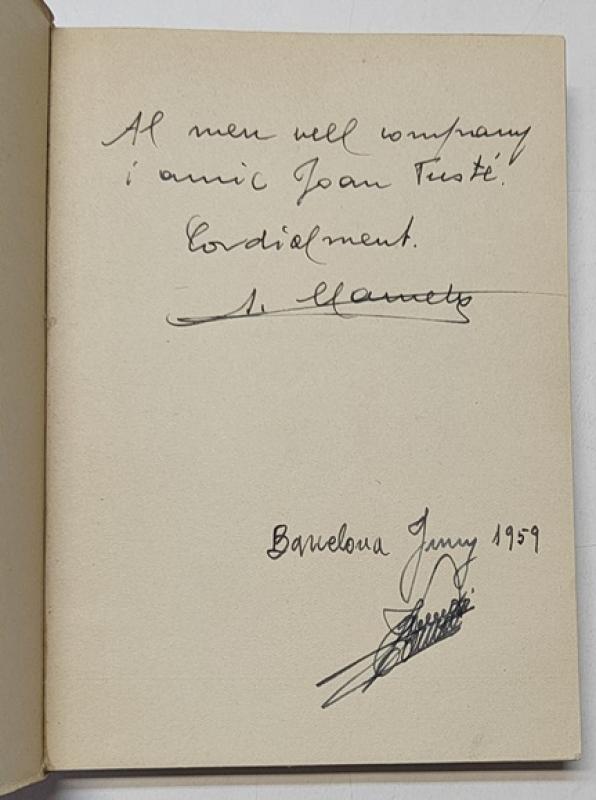 Al meu vell company
i amic Joan Tusté.
Cordialment.
Barcelona Juny 1959